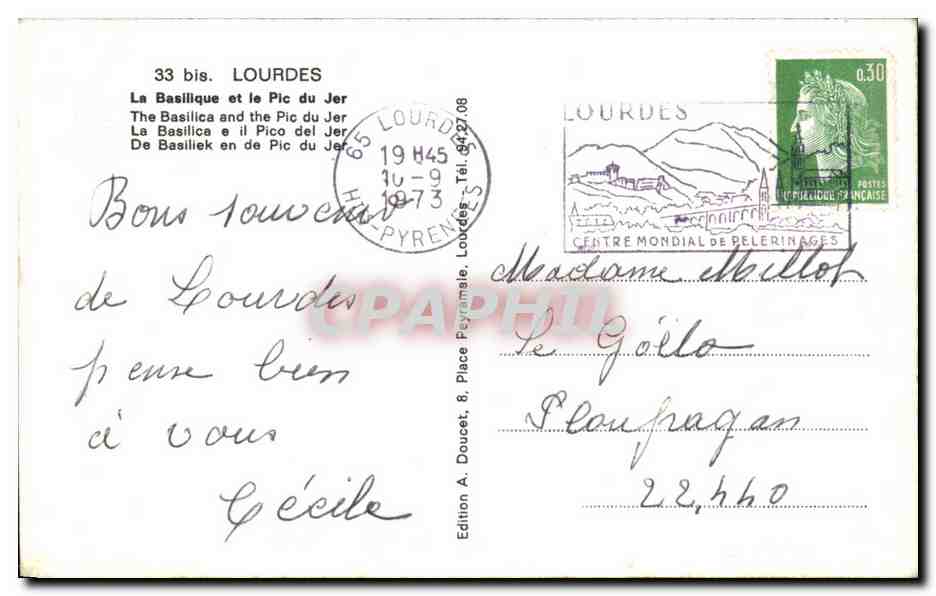 33 bis. LOURDES
La Basilique et le Pic du Jer
The Basilica and the Pic du Jer
La Basilica e il Pico del Jer
De Basiliek en de Pic du Jer
Bons souvenir
de Lourdes
pense bien
à vous
Cécile
Edition A. Doucet, 8, Place Peyramale, Lourdes - Tél. 94.27.08
65 LOURDES
19 H45
10-9
1973
HTES-PYRENEES
LOURDES
CENTRE MONDIAL DE PELERINAGES
0,30
POSTES
REPUBLIQUE FRANÇAISE
Madame Millot
Le Goëlo
Ploufragan
22,440
CPAPHIL